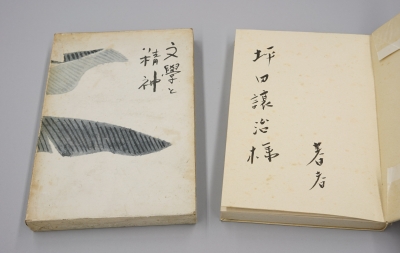 文學と
精神
坪田讓治様
著者